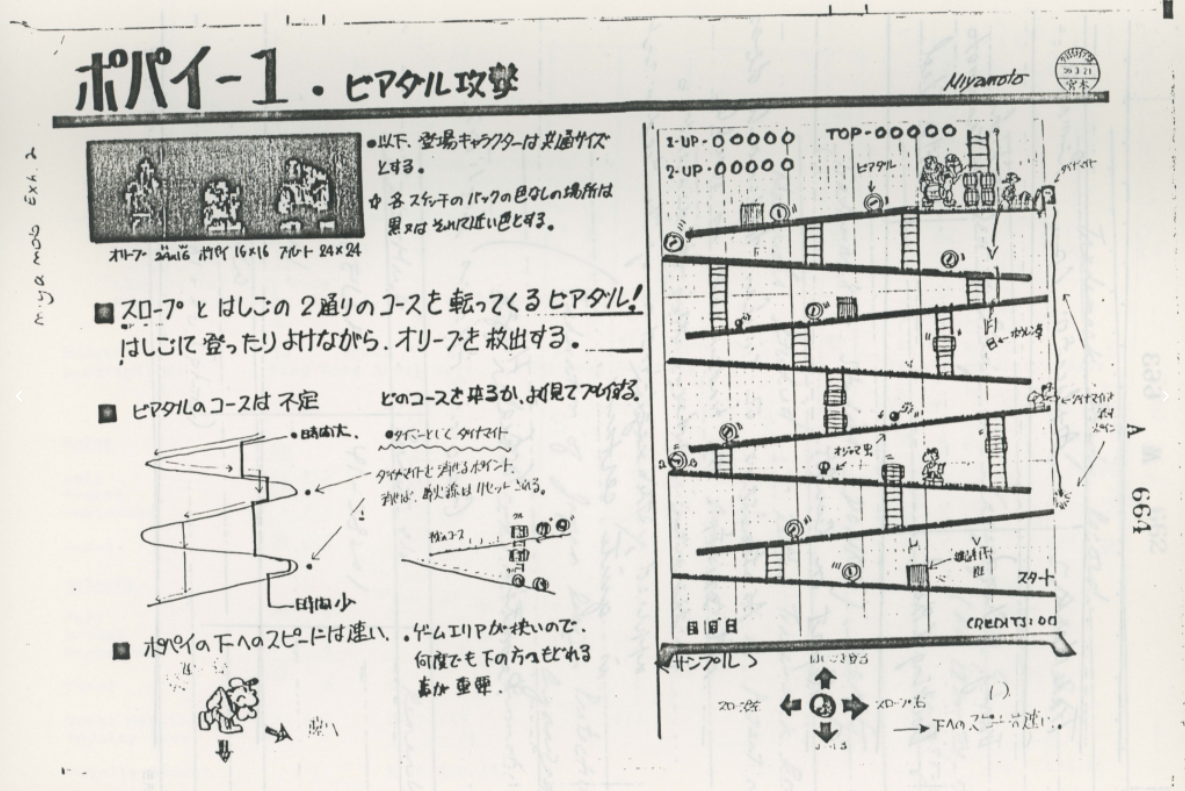 ポパイー1・ビアダル攻撃
Miyamoto
宮本
miyamoto Exh. 2
●以下、登場キャラクターは共通サイズ
とする。
☆ 各スケッチのバックの色なしの場所は
黒又はそれに近い色とする。
オリーブ 24×16 ポパイ 16×16 ブルート 24×24
■ スロープとはしごの2通りのコースを転ってくるビアダル!
はしごにて登ったりよけながら、オリーブを救出する。
■ ビアダルのコースは不定 どのコースを来るか、よく見てプレイする。
・時間大.
●タイマーとしてダイナマイト
ダイナマイトを消せるポイント.
消せば、導火線はリセットされる。
時間少
■ ポパイの下へのスピードは速い.
・ゲームエリアが狭いので、
何度でも下の方へもどれる
事が重要.
1-UP-00000 TOP-00000
2-UP-00000
ビアダル
ダイナマイト
オジャマ虫
スタート
CREDITS:00
<サンプル>
スロープ左
スロープ右
→下へのスピードは速い.
A 664